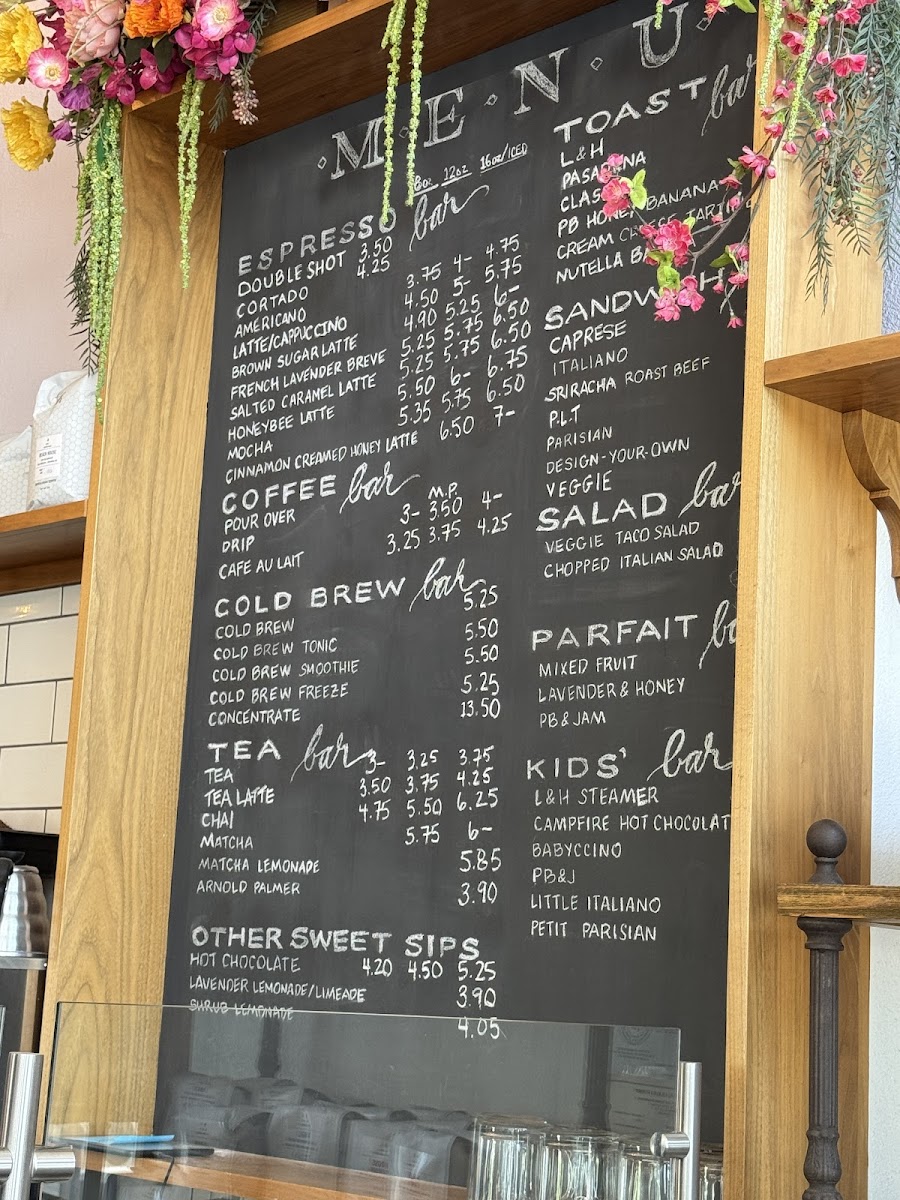 M·E·N·U
8oz 12oz 16oz/ICED
ESPRESSO bar
DOUBLE SHOT 3.50
CORTADO 4.25
AMERICANO 3.75 4- 4.75
LATTE/CAPPUCCINO 4.50 5- 5.75
BROWN SUGAR LATTE 4.90 5.25 6-
FRENCH LAVENDER BREVE 5.25 5.75 6.50
SALTED CARAMEL LATTE 5.25 5.75 6.50
HONEYBEE LATTE 5.50 6- 6.75
MOCHA 5.35 5.75 6.50
CINNAMON CREAMED HONEY LATTE 6.50 7-
COFFEE bar
POUR OVER M.P.
DRIP 3- 3.50 4-
CAFE AU LAIT 3.25 3.75 4.25
COLD BREW bar
COLD BREW 5.25
COLD BREW TONIC 5.50
COLD BREW SMOOTHIE 5.50
COLD BREW FREEZE 5.25
CONCENTRATE 13.50
TEA bar
TEA 3- 3.25 3.75
TEA LATTE 3.50 3.75 4.25
CHAI 4.75 5.50 6.25
MATCHA 5.75 6-
MATCHA LEMONADE 5.85
ARNOLD PALMER 3.90
OTHER SWEET SIPS
HOT CHOCOLATE 4.20 4.50 5.25
LAVENDER LEMONADE/LIMEADE 3.90
SHRUB LEMONADE 4.05
TOAST bar
L&H
PASADENA
CLAS
PB HONEY BANANA
CREAM CHEESE TARTI
NUTELLA BA
SANDWICH
CAPRESE
ITALIANO
SRIRACHA ROAST BEEF
P.L.T
PARISIAN
DESIGN-YOUR-OWN
VEGGIE
SALAD bar
VEGGIE TACO SALAD
CHOPPED ITALIAN SALAD
PARFAIT ba
MIXED FRUIT
LAVENDER & HONEY
PB & JAM
KIDS' bar
L&H STEAMER
CAMPFIRE HOT CHOCOLAT
BABYCCINO
PB&J
LITTLE ITALIANO
PETIT PARISIAN